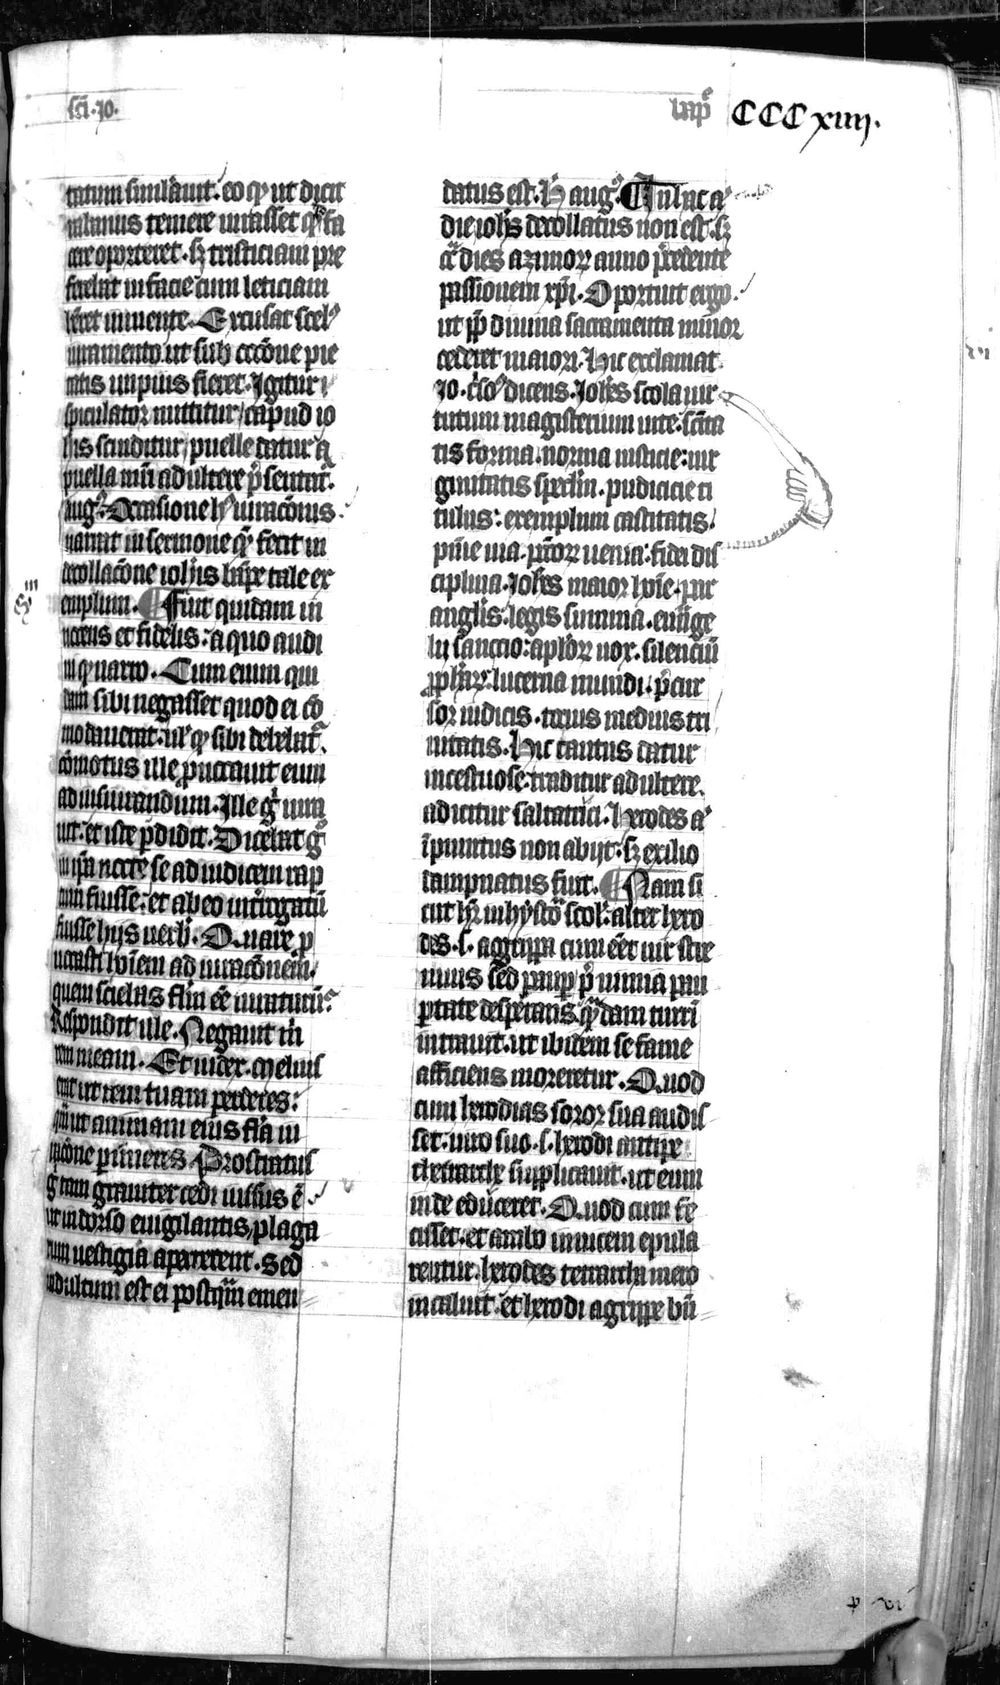 sci · Jo ·
bapt̄
CCCxiiij.
tatum simulauit · eo q̄ ut dicit
rabanus temere iurasset q̄ fa
cere oporteret · s; tristiciam pre
ferebat in facie cum leticiam
h̄ret in mente · Excusat scel9
iuramento ut sub occōne pie
tatis impius fieret · Igitur
spiculator mittitur / capud io
h̄is scinditur / puelle datur a
puella mr̄i adultere p̄sentat̄ ·
aug9 · Occasione h9 iuracōnis ·
narrat in sermone q̄ fecit in
decollacōne ioh̄is bapt̄e tale ex
emplum · Fuit quidam in
nocens et fidelis : a quo audi
ui q̄ narro · Cum enim qui
dam sibi negasset quod ei cō
modauerat · ul̄ q̄ sibi debebat̄ ·
cōmotus ille prouocauit eum
ad iusiurandum · Ille g̊ iura
uit · et iste p̄didit · Dicebat g̊
in ip̄a nocte se ad iudicem rap
tum fuisse : et ab eo int̄rogatū
fuisse hijs uerb̄ · Quare p
uocasti hōiem ad iuracōnem ·
quem sciebas fl̄m eē iuraturū :
Respondit ille · Negauit m̄
rem meam · Et iudex · Melius
erat ut rem tuam perderes :
q̄m ut animam eius fl̄a iu
racōne perimeres · Prostratus
g̊ tam grauiter cedi iussus ē ·
ut in dorso euigilantis / plaga
rum uestigia apparerent · Sed
indultum est ei postq̄m emen
datus est · H̄ aug9 · In hac a9
die ioh̄s decollatus non est · s;
c̄ dies azimor; anno p̄cedente
passionem xp̄i · Oportuit ergo ·
ut pp̄ diuina sacramenta minor
cederet maiori · Hic exclamat
Jo · c̄so9 dicens · Joh̄es scola uir
tutum magisterium uite · sc̄ita
tis forma · norma iusticie : uir
ginitatis specl̄m · pudicicie ti
tulus : exemplum castitatis ·
pn̄ie uia · pc̄cor; uenia : fidei dis
ciplina · Joh̄es maior hōie · par
angl̄is : legis summa · euāge
lij sanctio : apl̄or; uox · silenciū
prophar; : lucerna mundi · p̄cur
sor iudicis · totius medius tri
nitatis · Hic tantus datur
incestuose : traditur adultere ·
adicitur saltatrici · Herodes a9
īpunitus non abijt : s; exilio
dampnatus fuit · Nam si
cut h̄r in hystō scol̄ : alter hero
des · s · agrippa cum eēt uir stre
nuus sed pauper p̄ nimia pau
pertate desperatus · q̄dam turri
intrauit · ut ibidem se fame
afficiens moreretur · Quod
cum herodias soror sua audis
set · uiro suo · s · herodi antipe
thetrarche supplicauit · ut eum
inde educeret · Quod cum fe
cisset · et ambo inuicem epula
rentur · herodes tetrarcha mero
incaluit · et herodi agrippe bn̄